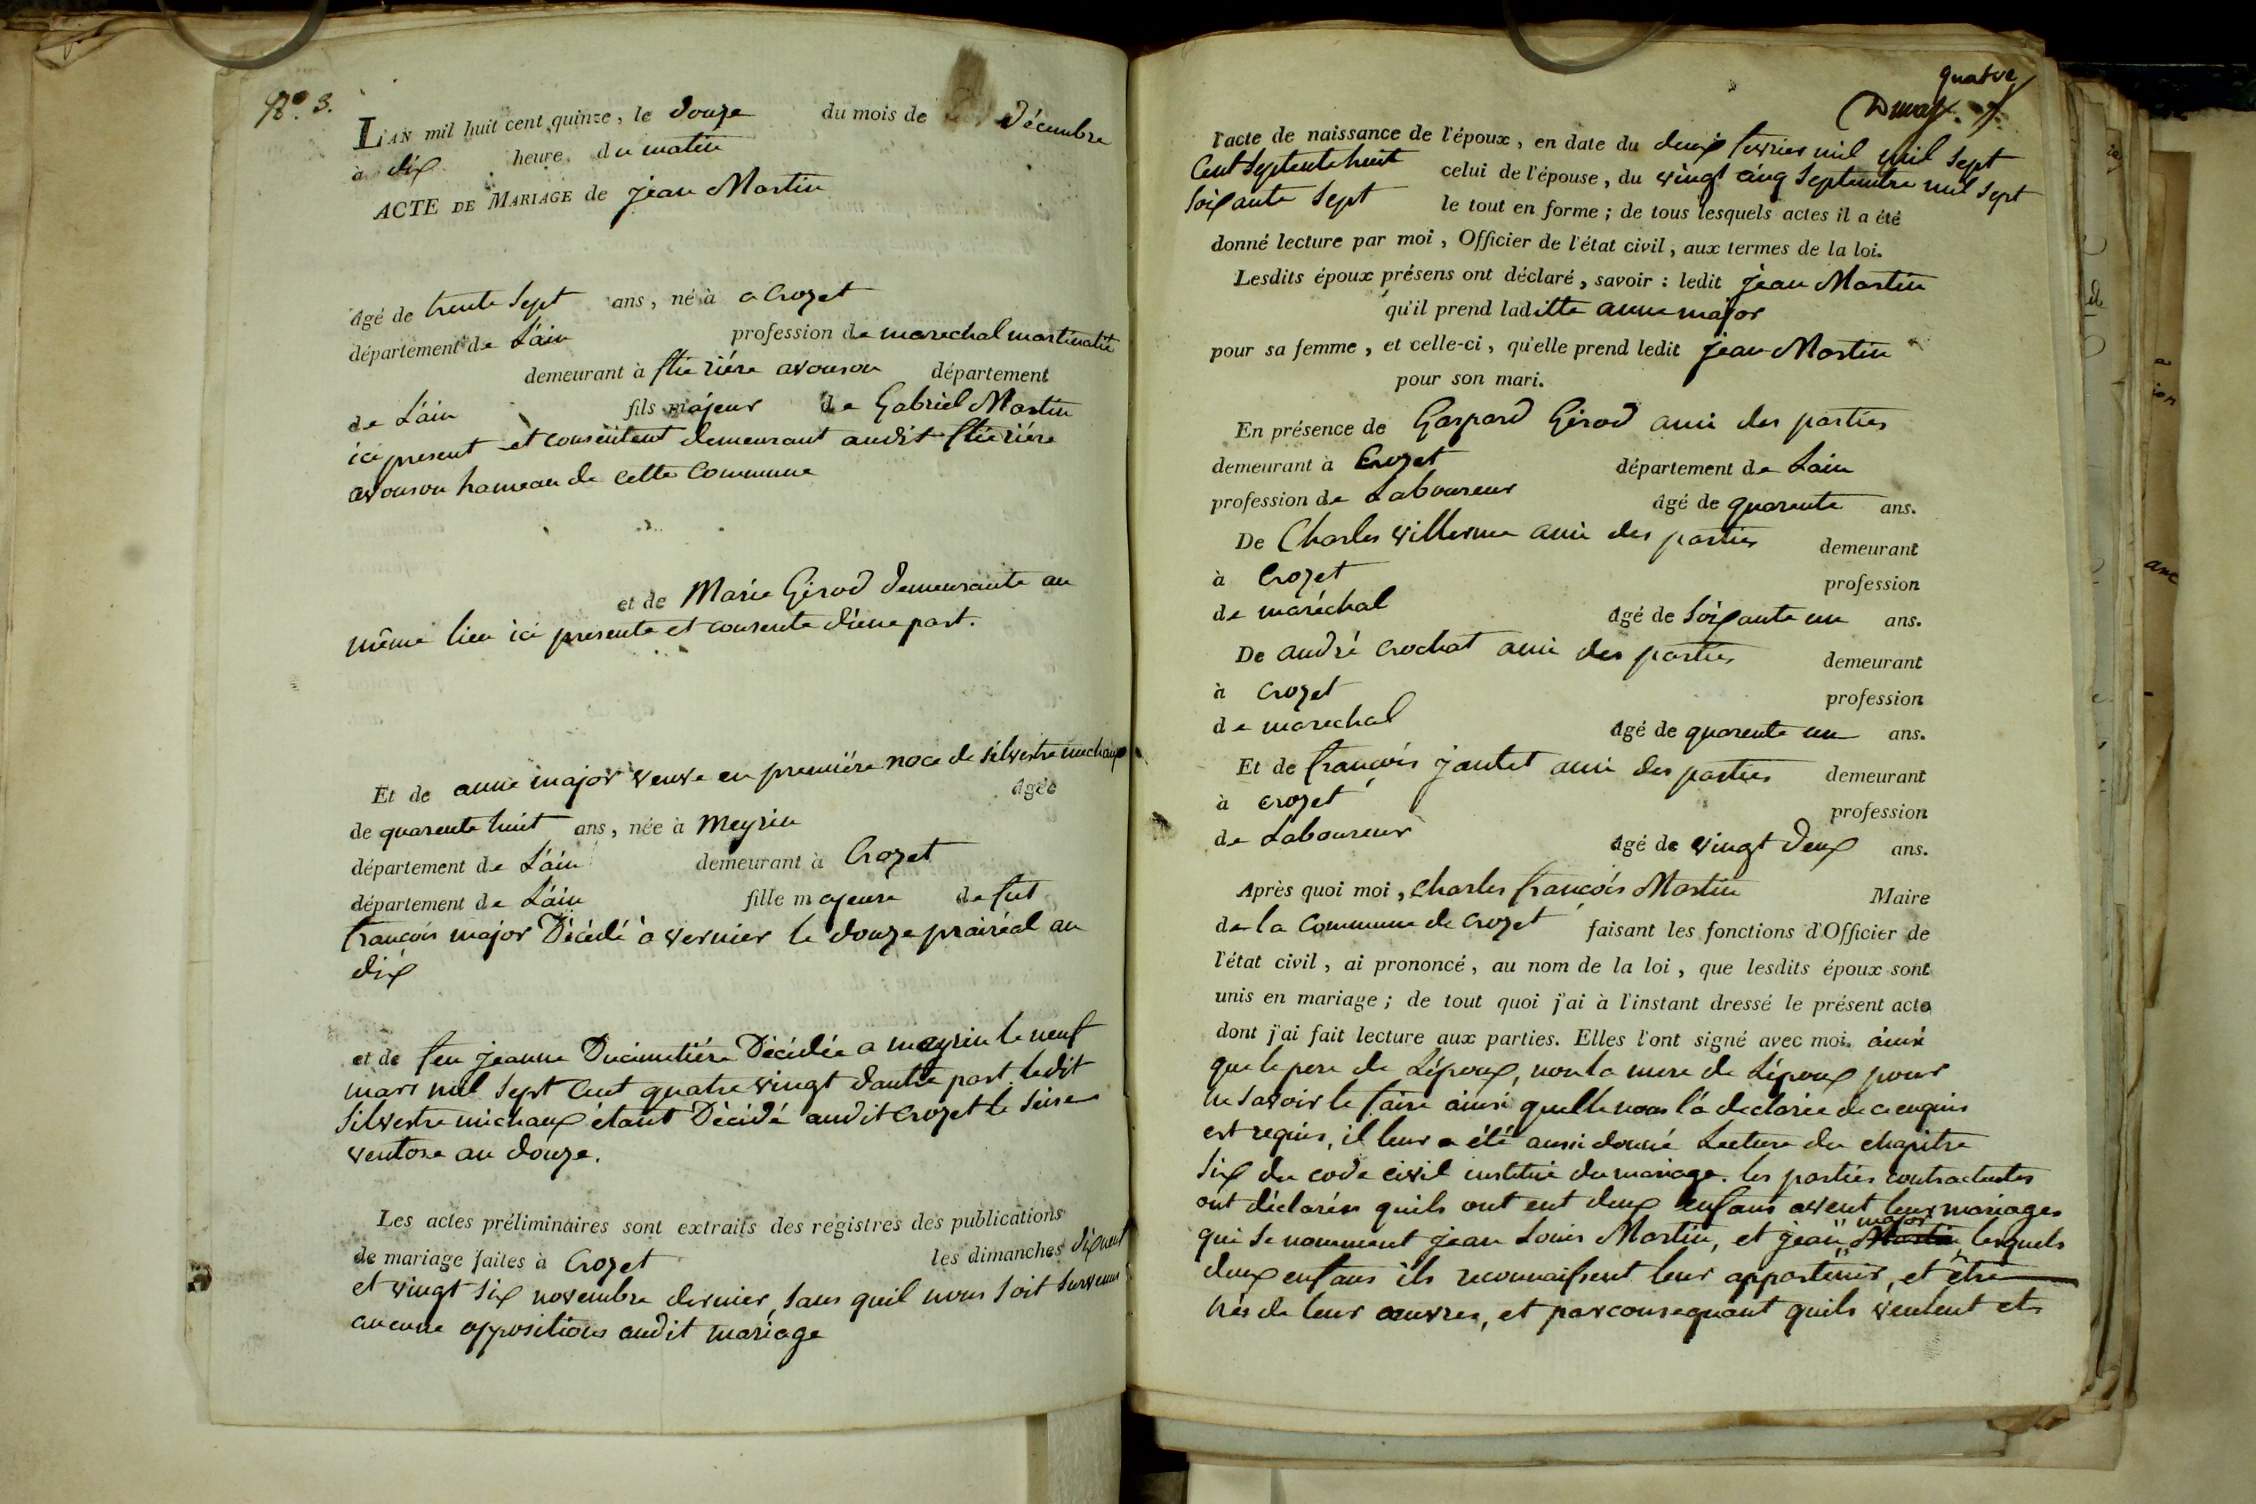 N.o 3.
L'AN mil huit cent quinze, le douze du mois de décembre
à dix heure du matin
ACTE DE MARIAGE de jean Martin
âgé de trente sept ans, né à a Crozet
département de L'ain profession de marechal
demeurant à avouson département
de L'ain fils majeur de Gabriel Martin
ici present et consentent demeurant audit
avouson hameau de cette Commune
et de Marie Girod demeurante au
même lieu ici presente et consente d'une part.
Et de anne major veuve en première noce de silvestre michaux
âgée
de quarente huit ans, née à Meyrin
département de L'ain demeurant à Crozet
département de L'ain fille majeure de fut
francois major Décédé à vernier le douze prairéal an
dix
et de feu jeanne Ducimetiére Décédée a meyrin le neuf
mars mil sept Cent quatre vingt dautre part. ledit
Silvestre michaux étant Décédé audit Crozet le seise
ventose an douze.
Les actes préliminaires sont extraits des registres des publications
de mariage faites à Crozet les dimanches dixneuf
et vingt six novembre dernier, sans quil nous soit survenu
aucune oppositions audit mariage
quatre
l'acte de naissance de l'époux, en date du deux fevrier mil mil sept
Cent septente huit celui de l'épouse, du vingt cinq septembre mil sept
soixante sept le tout en forme; de tous lesquels actes il a été
donné lecture par moi, Officier de l'état civil, aux termes de la loi.
Lesdits époux présens ont déclaré, savoir: ledit jean Martin
qu'il prend laditte anne major
pour sa femme, et celle-ci, qu'elle prend ledit jean Martin
pour son mari.
En présence de Gaspard Girod ami des parties
demeurant à Crozet département de Lain
profession de Laboureur âgé de quarente ans.
De Charles villerme ami des parties demeurant
à Crozet profession
de maréchal âgé de soixante un ans.
De andré crochat ami des parties demeurant
à Crozet profession
de marechal âgé de quarente un ans.
Et de françois jantet ami des parties demeurant
à crozet profession
de Laboureur âgé de vingt deux ans.
Après quoi moi, Charles françois Martin Maire
de la Commune de Crozet faisant les fonctions d'Officier de
l'état civil, ai prononcé, au nom de la loi, que lesdits époux sont
unis en mariage; de tout quoi j'ai à l'instant dressé le présent acte
dont j'ai fait lecture aux parties. Elles l'ont signé avec moi. ainsi
que le pere de Lépoux, non la mere de Lépoux pour
ne savoir le faire ainsi quelle nous l'a declarée de ce enquis
est requis, il leur a été aussi donné Lecture du chapitre
six du code civil institué du mariage. les parties contractentes
ont déclarées quils ont eut deux enfans avent leur mariages
major
qui se nomment jean Louis Martin, et jean Martin lesquels
deux enfans ils reconnaissent leur appartenir, et être
nés de leur œuvres, et parconsequant quils veulent et